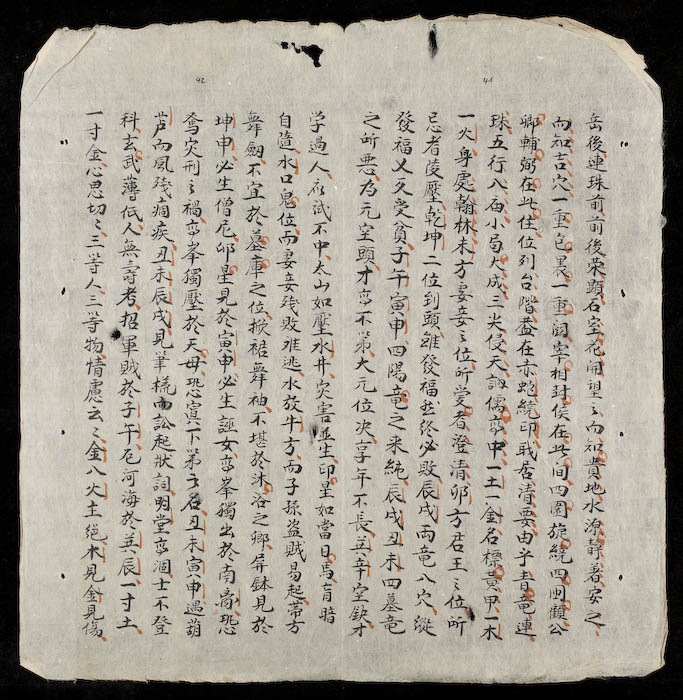 41
岳後連珠前前後荣顕石室花開望之向知貴地水源静着安之
向知吉穴一重包裹一重閣宰相封侯在此间四圍旋繞四明顧公
卿輔弼在此住位列台階葢在赤蛇繞印职居清要由乎青竜連
珠五行八面小局大成三尖侵天諷儒夢中一土一金石標黄甲一木
一火身處翰林未方妻妾之位所爱者澄清卯方君王之位所
忌者凌壓乾坤二位到頭雖發福此终必敗辰戌両竜八穴縱
發福乂久受貧子午寅申四陽竜之来純辰戌丑未四墓竜
之所悪为元空頭才夢不第大元位决享年不長英辛空缺才
42
学過人応試不中太山如壓水井灾害並生印星如當日焉盲暗
自造水口鬼位而妻妾残敗难逃水放牛方向子孫盜賊易起蒂方
舞劔不宜於墓庫之位掀裙舞袖不堪於沐浴之卿屏鉢見於
坤申必生僧尼卯星見於寅申必生誣女峦峯獨出於南离恐
鸾灾刑之禍峦峯獨壓於天毋恐寡下第之名丑未寅申遇葫
芦向風残痼疾丑未辰戌見筆槁而訟起狀詞明堂峦涸士不登
科玄武薄低人無壽考招軍賊於子午厄河海於英辰一寸土
一寸金心思切之三等人三等物情慮云之金八火土絕木見金見傷